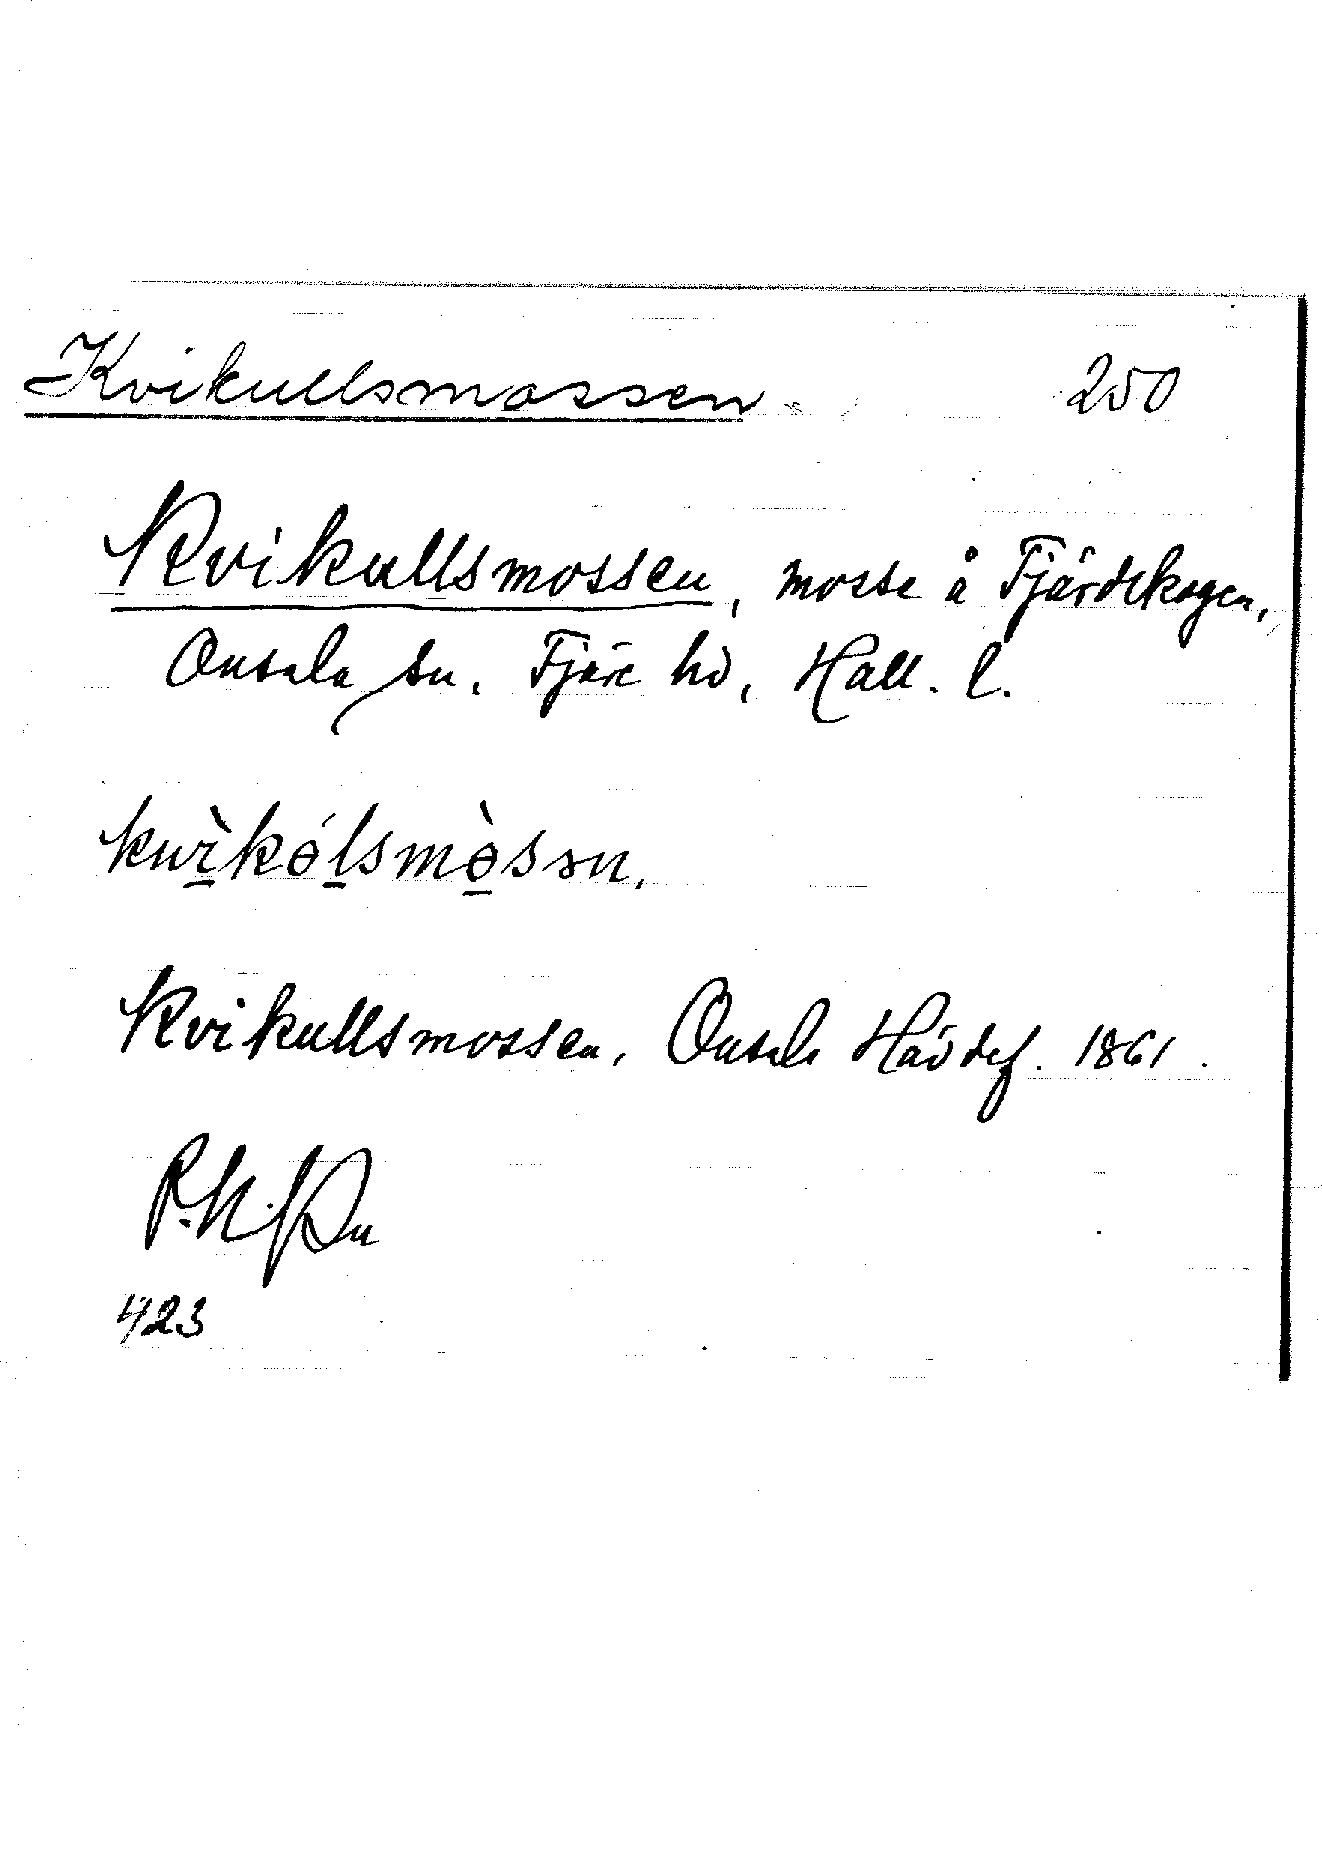 Kvikullsmossen 250
Kvikullsmossen, mosse å Fjärdskogen,
Onsala sn, Fjäre hd, Hall. l.
kwìkólsmòsən.
Kvikullsmossen, Onsala 1861.
423